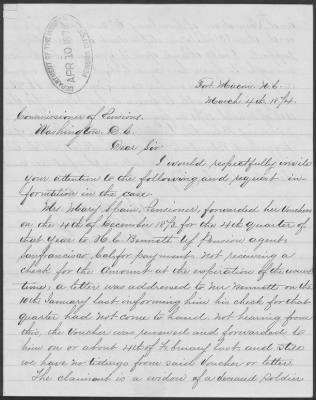 DEPARTMENT OF THE INTERIOR
APR 10 187
Fort Macon, N.C.
March 4th 1874.
Commissioner of Pensions.
Washington, D.C.
Dear Sir
I would respectfully invite
your attention to the following, and request in-
formation in the case.
Mrs. Mary Spain, Pensioner, forwarded her Vouchers
on the 4th of December 1873 for the 4th quarter of
that year to H.C. Bennett Esq Pension agent
San Francisco, Cal. for payment. Not receiving a
check for the amount at the expiration of the usual
time, a letter was addressed to Mr Bennett on the
10th January last, informing him his check for that
quarter had not come to hand. not hearing from
this, the Voucher was renewed and forwarded to
him on or about 4th of February last, and still
we have no tidings from said Voucher or letter.
The claimant is a widow of a deceased soldier